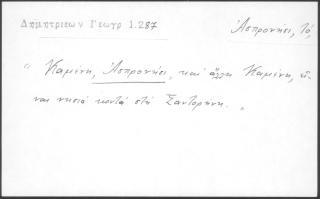 Δημητριεων Γεωργ 1.287
Ἀσπρονήσι, τό,
" Καμίνη, Ἀσπρονήσι, καί ἄλλη Καμίνη, εἶ-
ναι νησιά κοντά στή Σαντορήνη. „